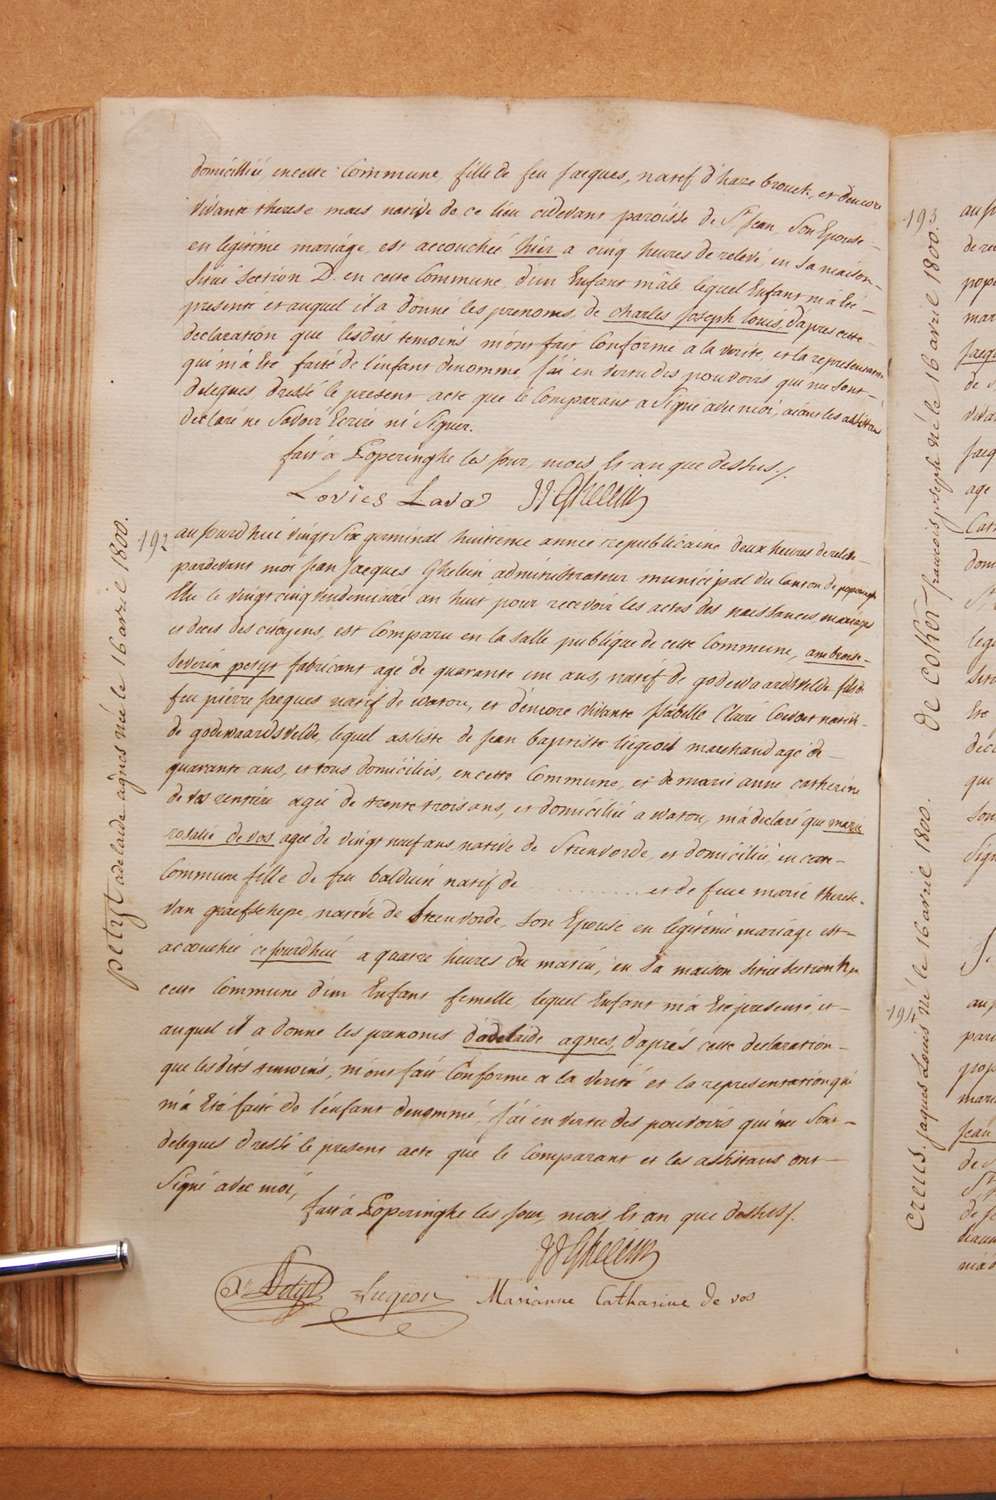 domicilliée en cette Commune, fille de feu Jacques, natif d'hazebrouck, et d'encore
vivante therese maes native de ce lieu cidevant paroisse de St Jean Son Epouse
en legitime mariage, est accouchée hier a cinq heures de relevé, en sa maison
Située Section D en cette Commune, d'un Enfant mâle lequel Enfant m'a Eté
presenté et auquel il a donné les prenoms de charles joseph louis, d'apres cette
declaration que lesdits temoins m'ont fait Conforme a la verité, et la representation
qui m'a Eté faite de l'enfant denommé J'ai en vertu des pouvoirs qui me sont
delegues, dressé le present acte que le Comparant a Signé avec moi, aiant les assistans
declaré ne Savoir Ecrire ni Signer.
fait à Poperinghe les Jour, mois Et an que dessus./
Lovies Lava JJGhelein
192
aujourdhui vingt Six germinal huitieme année republicaine deux heures de relevé
pardevant moi Jean Jacques Ghelein administrateur municipal du Canton de poperinghe
Elu le vingt cinq vendemiaire an huit pour recevoir les actes des naissances mariages
et deces des citoyens, est Comparu en la salle publique de cette Commune, ambroise
Severin petyt fabricant agé de quarante un ans, natif de godewaardsvelde fils de
feu pierre Jacques natif de watou, et d'encore vivante Isabelle Claire native
de godewaardsvelde, lequel assisté de Jean baptiste liegeois marchand agé de
quarante ans, et tous domiciliés, en cette Commune, et de marie anne catherine
de vos rentiere agée de trente trois ans, et domiciliée a watou, m'a declaré que marie
rosalie de vos agée de vingt neuf ans, native de Steenvorde, et domiciliée en cette
Commune fille de feu balduin natif de .......... et de feue marie therese
van graefschepe, native de Steenvorde, son Epouse en legitime mariage est
acouchée cejourdhui a quatre heures du matin, en Sa maison Située Section
cette Commune d'un Enfant femelle, lequel Enfant m'a Eté presenté, et
auquel il a donné les prenoms d'adelaide agnes, d'aprés cette declaration
que lesdits temoins, m'ont fait Conforme a la verité et la representation qui
m'a Eté fait de l'enfant denommé, J'ai en vertu des pouvoirs qui me Sont
delegues dressé le present acte que le Comparant et les assistans ont
Signé avec moi,
fait à Poperinghe les Jour, mois Et an que dessus./
JJGhelein
Petyt Liegeois Marianne Catharine de vos
petyt adelaide agnes née le 16 avril 1800.
193
de coker francois joseph né le 16 avril 1800.
194
creus. jaques Louis né le 16 avril 1800.